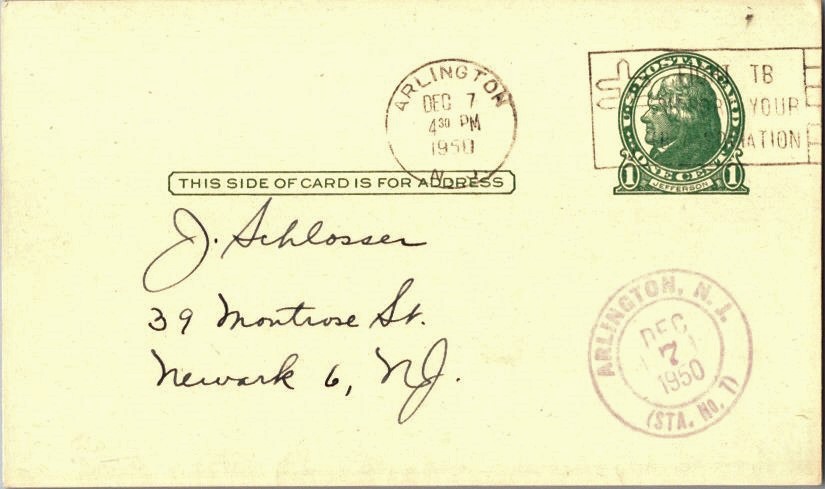 ARLINGTON
DEC 7
4 30 PM
1950
N. J.
TB
YOUR
U.S. POSTAL CARD
ONE CENT
1 JEFFERSON 1
THIS SIDE OF CARD IS FOR ADDRESS
J. Schlosser
39 Montrose St.
Newark 6, NJ.
ARLINGTON, N. J.
DEC
7
1950
(STA. No. 7)